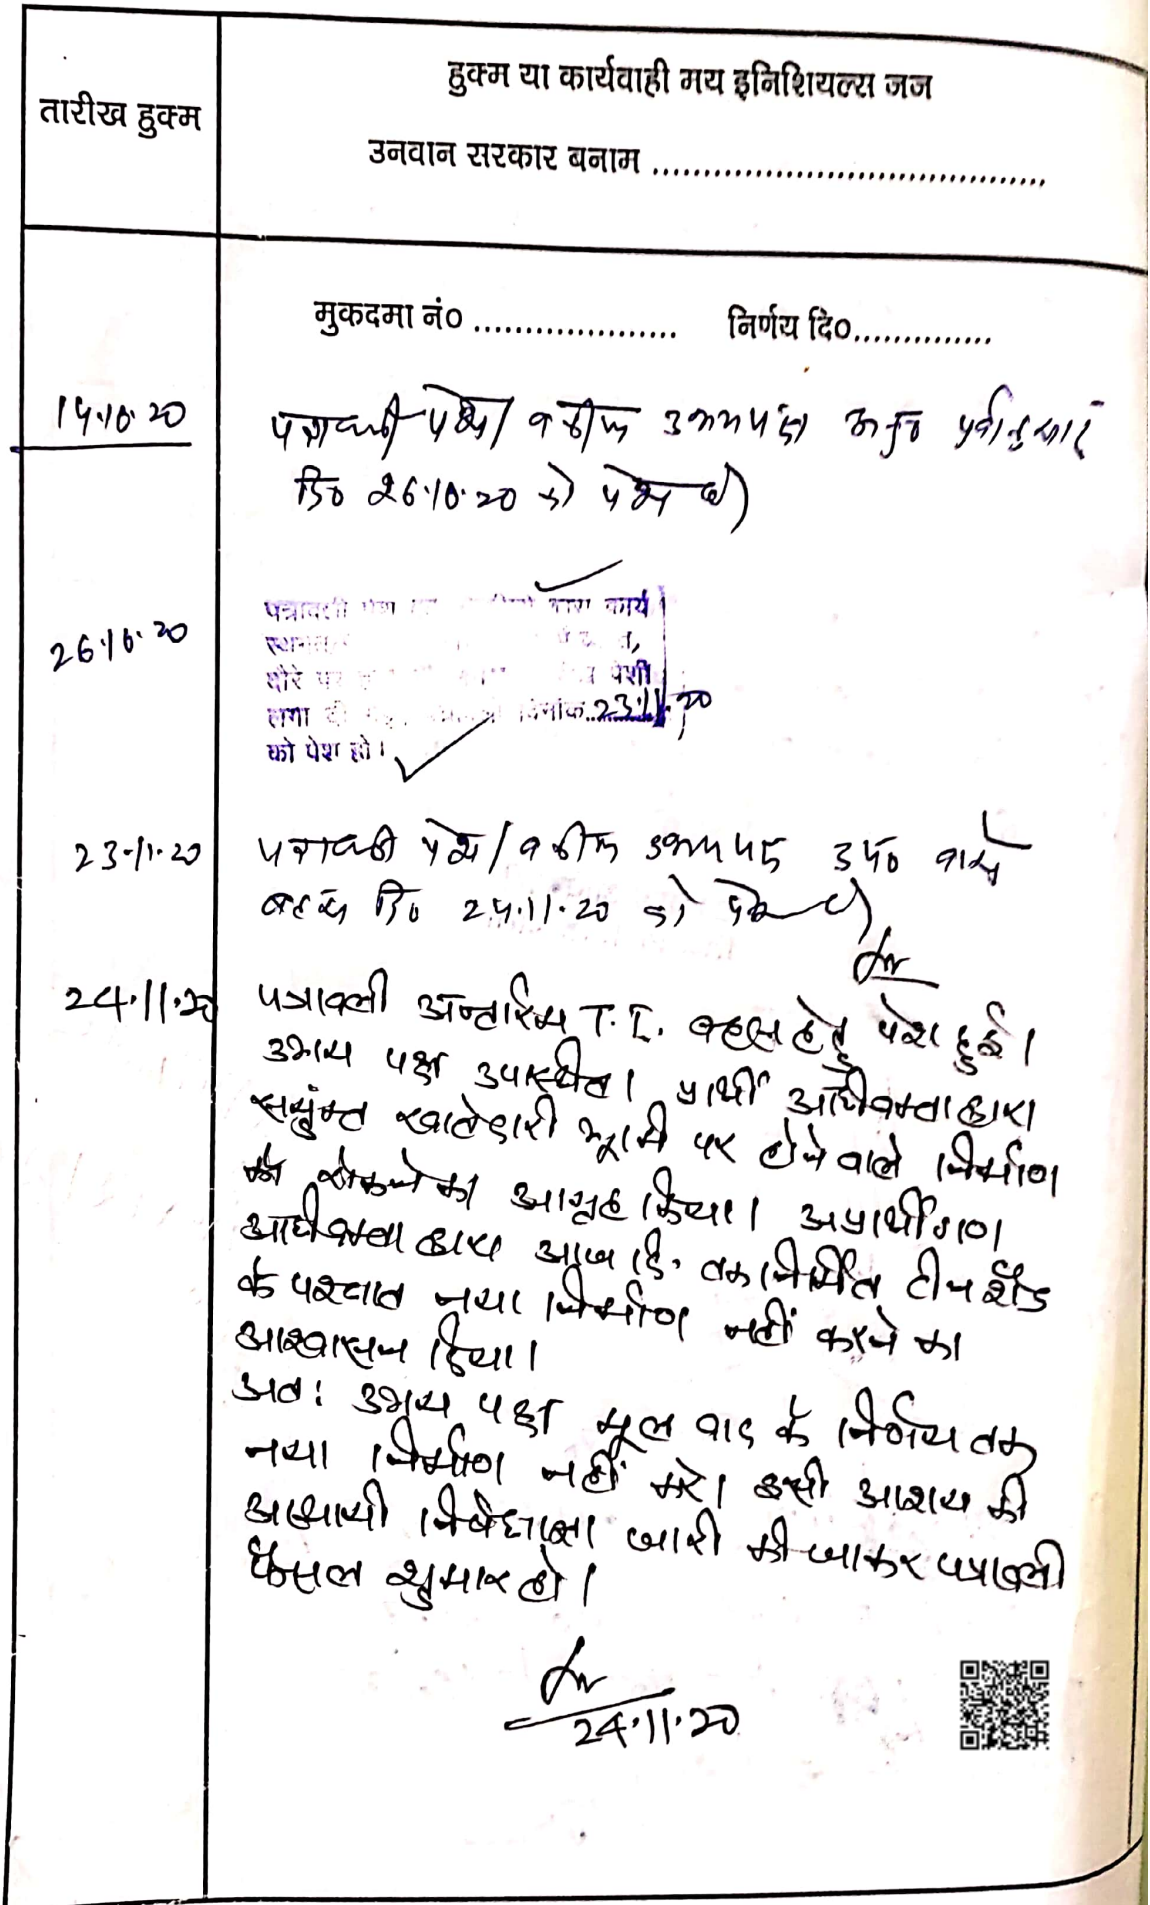 हुक्म या कार्यवाही मय इनिशियल्स जज
तारीख हुक्म
उनवान सरकार बनाम ......................................
मुकदमा नं० .................... निर्णय दि०..............
14.10.20
पत्रावली पेश / वकील उभयपक्ष पूर्वानुसार
दि० 26.10.20 को पेश हो
26.10.20
पत्रावली पेश कार्य
दौरे पर पेशी
लगा दी दिनांक..23.11.20
को पेश हो।
23.11.20
पत्रावली पेश / वकील उभयपक्ष उप० वास्ते
बहस दि० 24.11.20 को पेश हो
24.11.20
पत्रावली अन्तरिम T.I. बहस हेतु पेश हुई।
उभय पक्ष उपस्थित। प्रार्थी अधिवक्ता द्वारा
संयुक्त खातेदारी भूमि पर होने वाले निर्माण
को रोकने का आग्रह किया। अप्रार्थीगण
अधिवक्ता द्वारा आज दि. तक निर्मित टीनशैड
के पश्चात नया निर्माण नहीं करने का
आश्वासन दिया।
अतः उभय पक्ष मूल वाद के निर्णय तक
नया निर्माण नहीं करे। इसी आशय की
अस्थायी निषेधाज्ञा जारी की जाकर पत्रावली
फैसल शुमार हो।
24.11.20